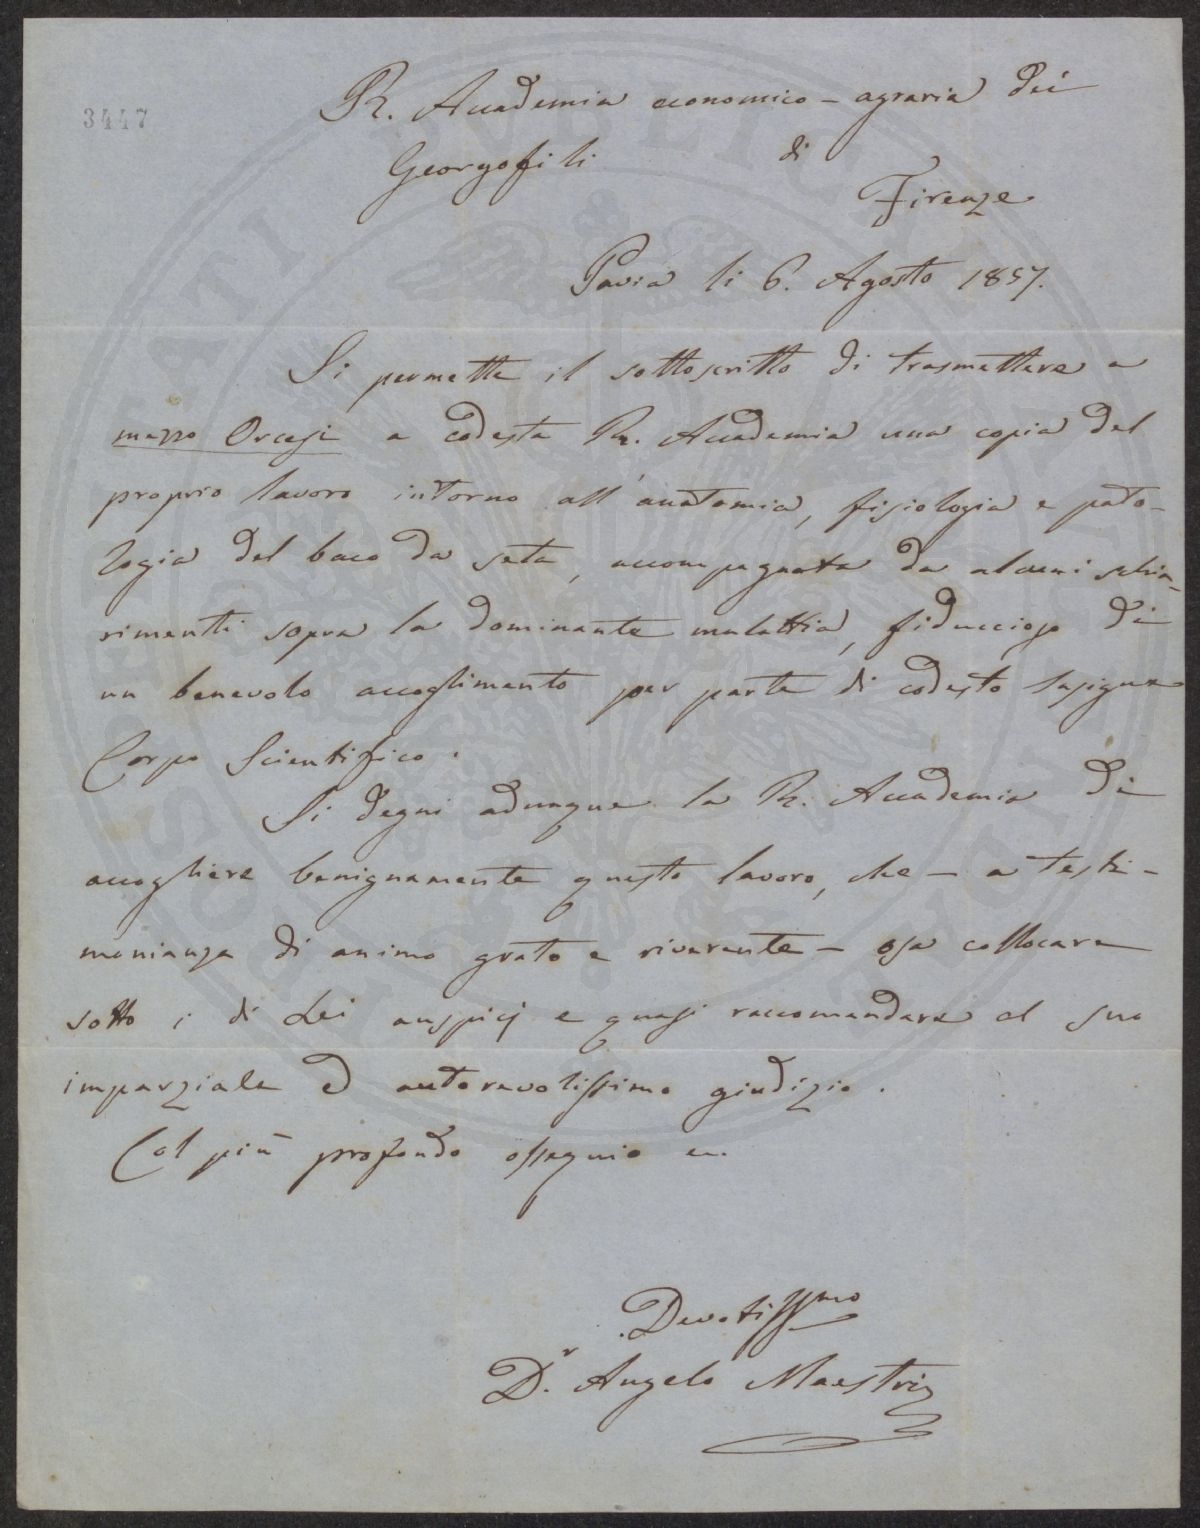 3447
R. Accademia economico-agraria dei
Georgofili di
Firenze
Pavia li 6. Agosto 1857.
Si permette il sottoscritto di trasmettere a
mezzo Orcesi a codesta R. Accademia una copia del
proprio lavoro intorno all'anatomia, fisiologia e pato-
logia del baco da seta, accompagnata da alcuni schia-
rimenti sopra la dominante malattia, fiduccioso di
un benevolo accoglimento per parte di codesto Insigne
Corpo Scientifico.
Si degni adunque la R. Accademia di
accogliere benignamente questo lavoro, che - a testi-
monianza di animo grato e riverente - osa collocare
sotto i di Lei auspicj e quasi raccomandare al suo
imparziale ed autorevolissimo giudizio.
Col più profondo ossequio
Devotissmo
Dr. Angelo Maestri